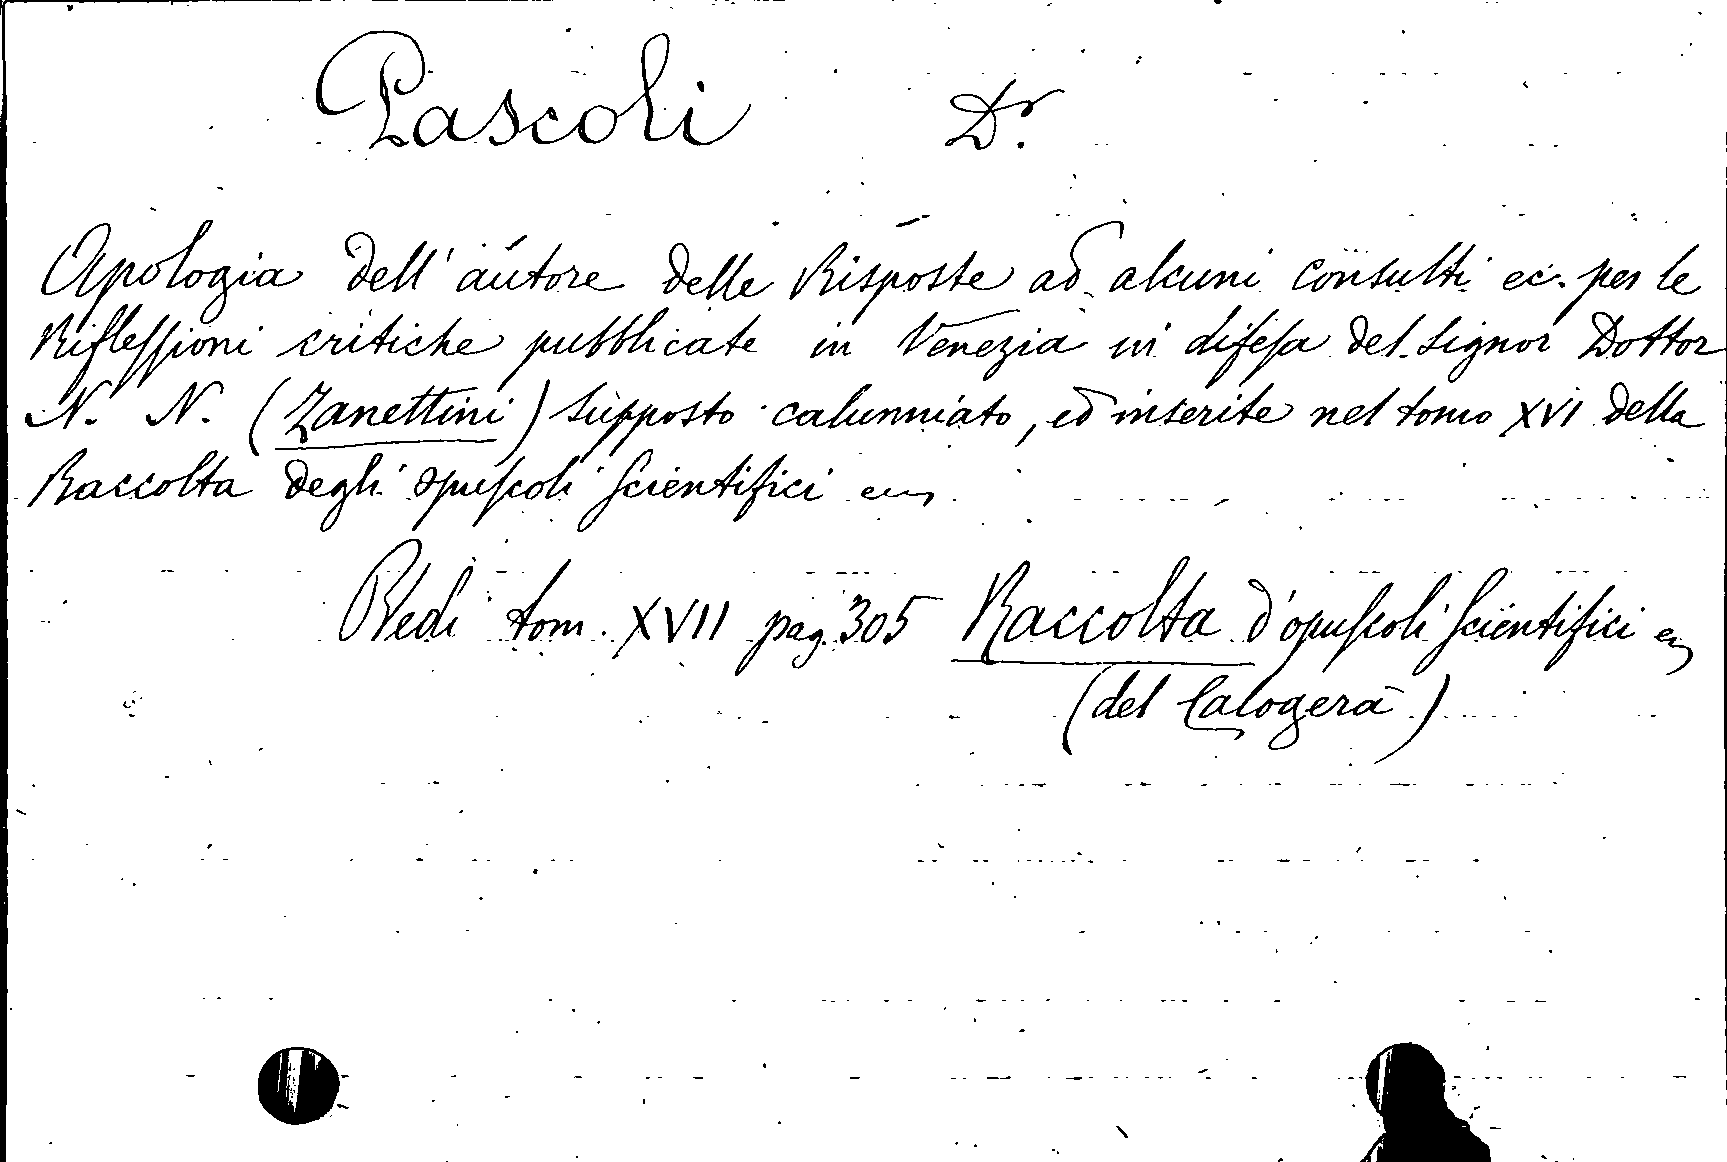 Pascoli Dr.
Apologia dell'autore delle Risposte ad alcuni consulti ec. per le
Riflessioni critiche pubblicate in Venezia in difesa del Signor Dottor
N. N. (Zanettini) supposto calunniato, ed inserite nel tomo XVI della
Raccolta degli opuscoli Scientifici ecc
Vedi tom. XVII pag. 305 Raccolta d'opuscoli Scientifici ec
(del Calogerà)